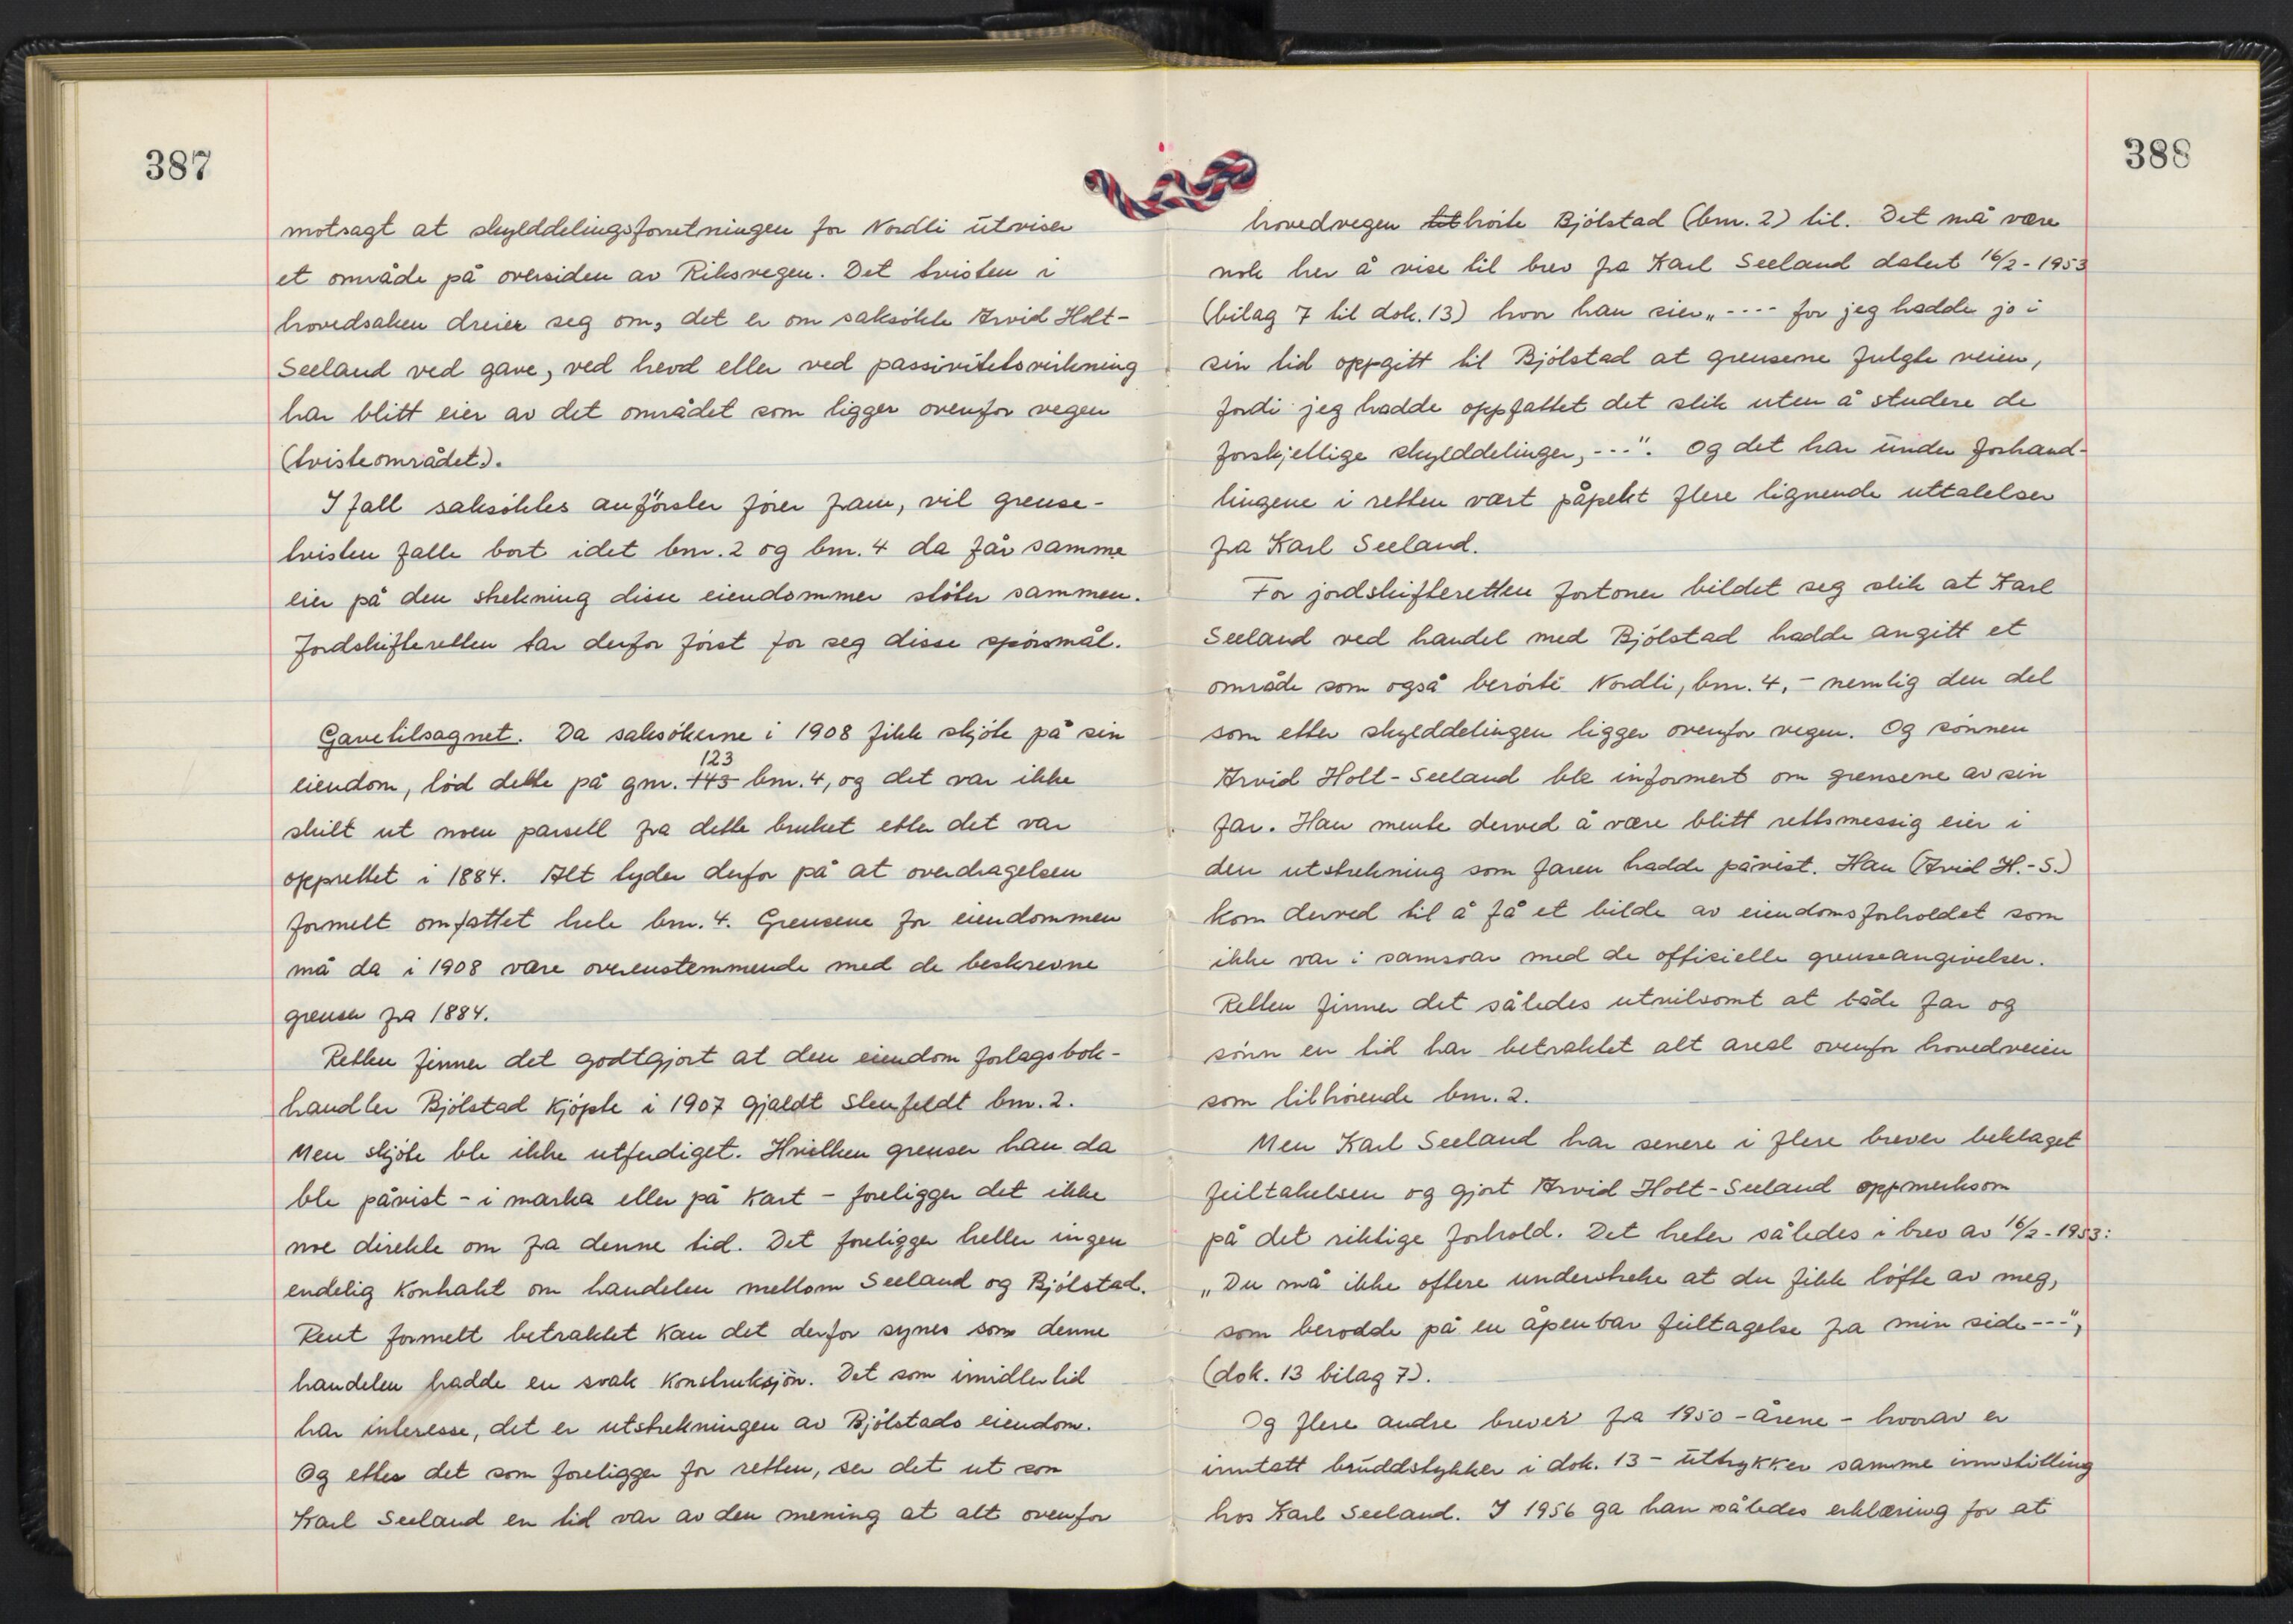 387
motsagt at skylddelingsforretningen for Nordli utviser
et område på oversiden av Riksvegen. Det tvisten i
hovedsaken dreier seg om, det er om saksökte Arvid Holt-
Seeland ved gave, ved hevd eller ved passivitetsvirkning
har blitt eier av det området som ligger ovenfor vegen
(tvisteområdet).
I fall saksöktes anförsler förer fram, vil grense-
tvisten falle bort idet bnr. 2 og bnr. 4 da får samme
eier på den strekning disse eiendommer stöter sammen.
Jordskifteretten tar derfor först for seg disse spörsmål.
Gavetilsagnet. Da saksökerne i 1908 fikk skjöte på sin
123
eiendom, löd dette på gnr. 143 bnr. 4, og det var ikke
skilt ut noen parsell fra dette bruket etter det var
opprettet i 1884. Alt tyder derfor på at overdragelsen
formelt omfattet hele bnr. 4. Grensene for eiendommen
må da i 1908 være overenstemmende med de beskrevne
grenser fra 1884.
Retten finner det godtgjort at den eiendom forlagsbok-
handler Bjölstad kjöpte i 1907 gjaldt Stenfeldt bnr. 2.
Men skjöte ble ikke utferdiget. Hvilken grenser han da
ble påvist - i marka eller på kart - foreligger det ikke
noe direkte om fra denne tid. Det foreligger heller ingen
endelig kontrakt om handelen mellom Seeland og Bjölstad.
Rent formelt betraktet kan det derfor synes som denne
handelen hadde en svak konstruksjon. Det som imidlertid
har interesse, det er utstrekningen av Bjölstads eiendom.
Og etter det som foreligger for retten, ser det ut som
Karl Seeland en tid var av den mening at alt ovenfor
388
hovedvegen tit hörte Bjölstad (bnr. 2) til. Det må være
nok her å vise til brev fra Karl Seeland datert 16/2 - 1953
(bilag 7 til dok. 13) hvor han sier „ ---- for jeg hadde jo i
sin tid oppgitt til Bjölstad at grensene fulgte veien,
fordi jeg hadde oppfattet det slik uten å studere de
forskjellige skylddelinger, ---". Og det har under forhand-
lingene i retten vært påpekt flere lignende uttalelser
fra Karl Seeland.
For jordskifteretten fortoner bildet seg slik at Karl
Seeland ved handel med Bjölstad hadde angitt et
område som også berörte Nordli, bnr. 4, - nemlig den del
som etter skylddelingen ligger ovenfor vegen. Og sönnen
Arvid Holt-Seeland ble informert om grensene av sin
far. Han mente derved å være blitt rettsmessig eier i
den utstrekning som faren hadde påvist. Han (Arvid H.-S.)
kom derved til å få et bilde av eiendomsforholdet som
ikke var i samsvar med de offisielle grenseangivelser.
Retten finner det således utvilsomt at både far og
sönn en tid har betraktet alt areal ovenfor hovedveien
som tilhörende bnr. 2.
Men Karl Seeland har senere i flere brever beklaget
feiltakelsen og gjort Arvid Holt-Seeland oppmerksom
på det riktige forhold. Det heter således i brev av 16/2 - 1953:
„Du må ikke oftere understreke at du fikk löfte av meg,
som berodde på en åpenbar feiltagelse fra min side ---",
(dok. 13 bilag 7).
Og flere andre brever fra 1950-årene - hvorav er
inntatt bruddstykker i dok. 13 - uttrykker samme innstilling
hos Karl Seeland. I 1956 ga han således erklæring for at